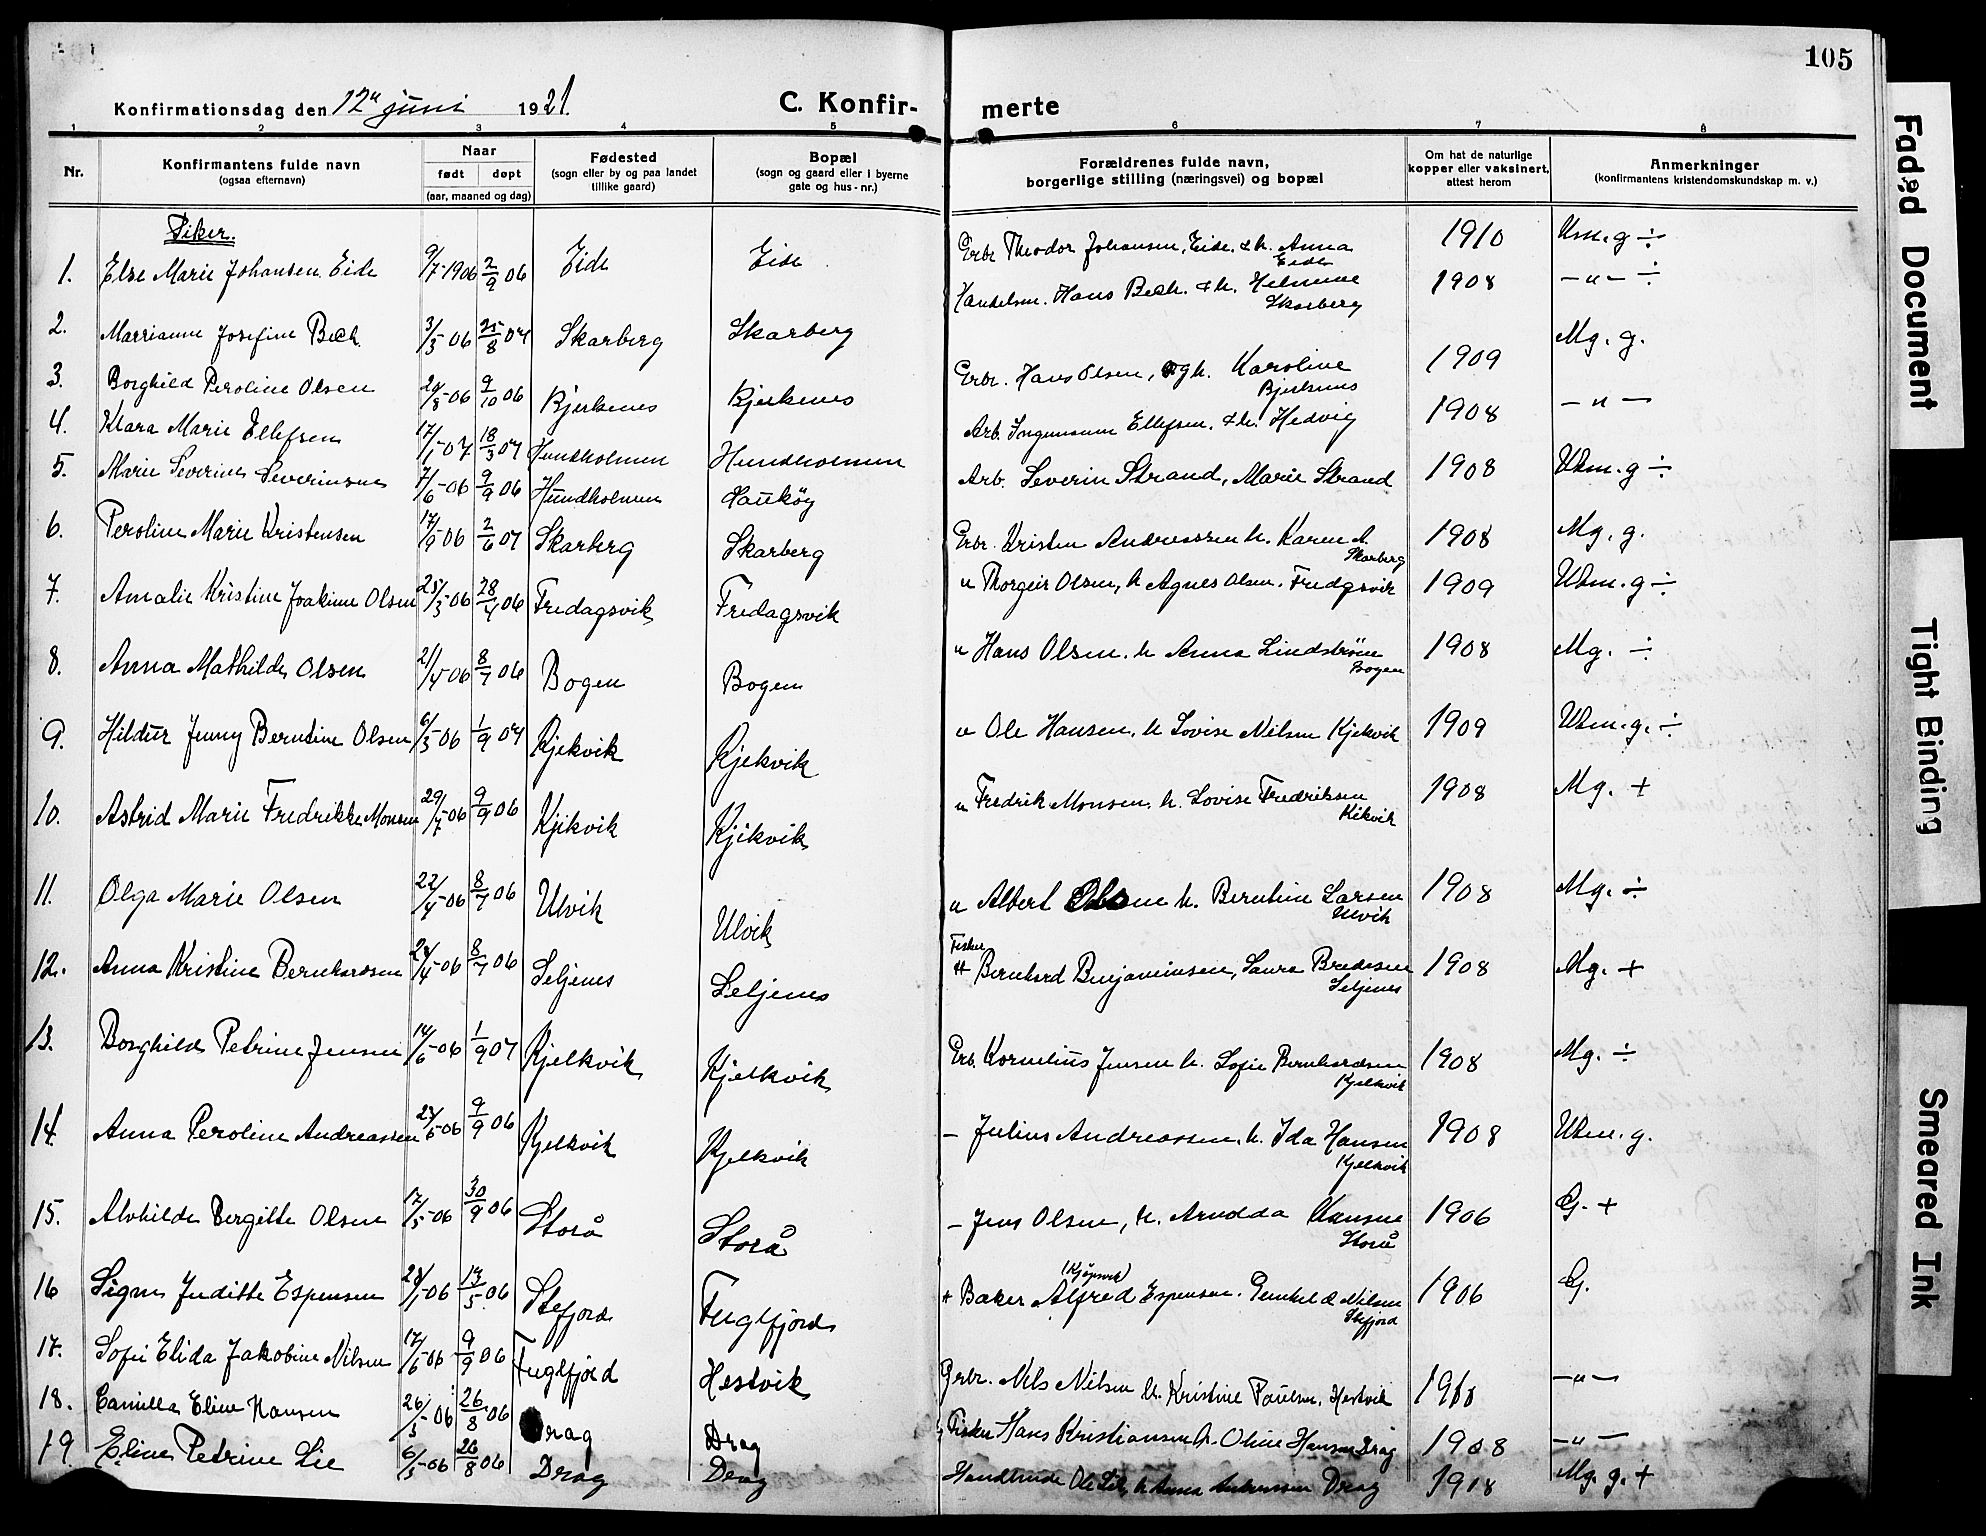 105
Konfirmationsdag den 12te juni 1921. C. Konfir- merte
1 2 3 4 5 6 7 8
Nr.
Konfirmantens fulde navn
(ogsaa efternavn)
Naar
født døpt
(aar, maaned og dag)
Fødested
(sogn eller by og paa landet
tillike gaard)
Bopæl
(sogn og gaard eller i byerne
gate og hus-nr.)
Forældrenes fulde navn,
borgerlige stilling (næringsvei) og bopæl
Om hat de naturlige
kopper eller vaksinert,
attest herom
Anmerkninger
(konfirmantens kristendomskundskap m. v.)
Piker.
1. Else Marie Johansen Eide 9/7-1906 2/9 06 Eide Eide Grbr. Theodor Johansen, Eide, & h. Anna Eide 1910 Ukm. g ÷
2. Marrianne Josefine Bech 3/3-06 25/8 07 Skarberg Skarberg Handelsm. Hans Bech. & h. Helmine Skarberg 1908 -"- ÷
3. Borghild Peroline Olsen 24/8-06 9/10 06 Bjerkenes Bjerkenes Grbr. Hans Olsen, gh. Karoline Bjerkenes 1909 Mg. g.
4. Klara Marie Ellefsen 17/1-07 18/3 07 Hundholmen Hundholmen Arb. Ellefsen. & h. Hedvig 1908 -"-
5. Marie Severine Severinsen 7/6-06 9/9 06 Hundholmen Haukøy Arb. Severin Strand, Marie Strand 1908 Ukm. g ÷
6. Peroline Marie Kristensen 17/9-06 2/6 07 Skarberg Skarberg Grbr. Kristen Andreassen h. Karen A. Skarberg 1908 Mg. g.
7. Amalie Kristine Joakime Olsen 25/3-06 28/4 06 Fredagsvik Fredagsvik " Thorgeir Olsen, h Agnes Olsen. Fredgsvik 1909 Ukm. g ÷
8. Anna Mathilde Olsen 21/4-06 8/7 06 Bogen Bogen " Hans Olsen. h Anna Lindström Bogen 1908 Mg. ÷
9. Hildur Jenny Berntine Olsen 6/3-06 1/9 07 Kjekvik Kjekvik " Ole Hansen, h Lovise Nilsen Kjekvik 1909 Ukm. g. ÷
10. Astrid Marie Fredrikke Monsen 29/7-06 9/9 06 Kjikvik Kjikvik " Fredrik Monsen, h. Lovise Fredriksen Kikvik 1908 Mg. +
11. Olga Marie Olsen 22/4-06 8/7 06 Ulvik Ulvik " Albert h. Berntine Larsen Ulvik 1908 Mg. ÷
12. Anna Kristine Bernhardsen 24/4-06 8/7 06 Seljenes Seljenes Fisker Bernhard Benjaminsen, Laura Bredesen Seljenes 1908 Mg. +
13. Borghild Petrine Jensen 14/6-06 1/9 07 Kjelkvik Kjelkvik Grb. Kornelius Jensen h. Sofie Bernhardsen Kjelkvik 1908 Mg. ÷
14. Anna Peroline Andreassen 23/6-06 9/9 06 Kjelkvik Kjelkvik - Julius Andreassen, h. Ida Hansen Kjelkvik 1908 Ukm. g.
15. Alvhilde Bergitte Olsen 17/5-06 30/9 06 Storå Storå - Jens Olsen, h. Arndda Hansen Storå 1906 G. +
16 Signe Juditte Espensen 28/1-06 13/5 06 Stefjord Fuglfjord + Baker (Kjøpsvik) Alfred Espensen. Nilsen Stefjord 1906 G.
17. Sofie Elida Jakobine Nilsen 17/6-06 9/9 06 Fuglfjord Hestvik Grbr. Nils Nilsen h. Kristine Paulsen, Hestvik 1910 -"-
18. Camilla Eline Hansen 26/3-06 26/8 06 Drag Drag Fisker Hans Kristiansen h. Oline Hansen Drag 1908 -"-
19. Eline Petrine Lie 6/3-06 26/8 06 Drag Drag Ole Lie, h Anna Drag 1918 Mg. g. +
Faded Document
Tight Binding
Smeared Ink